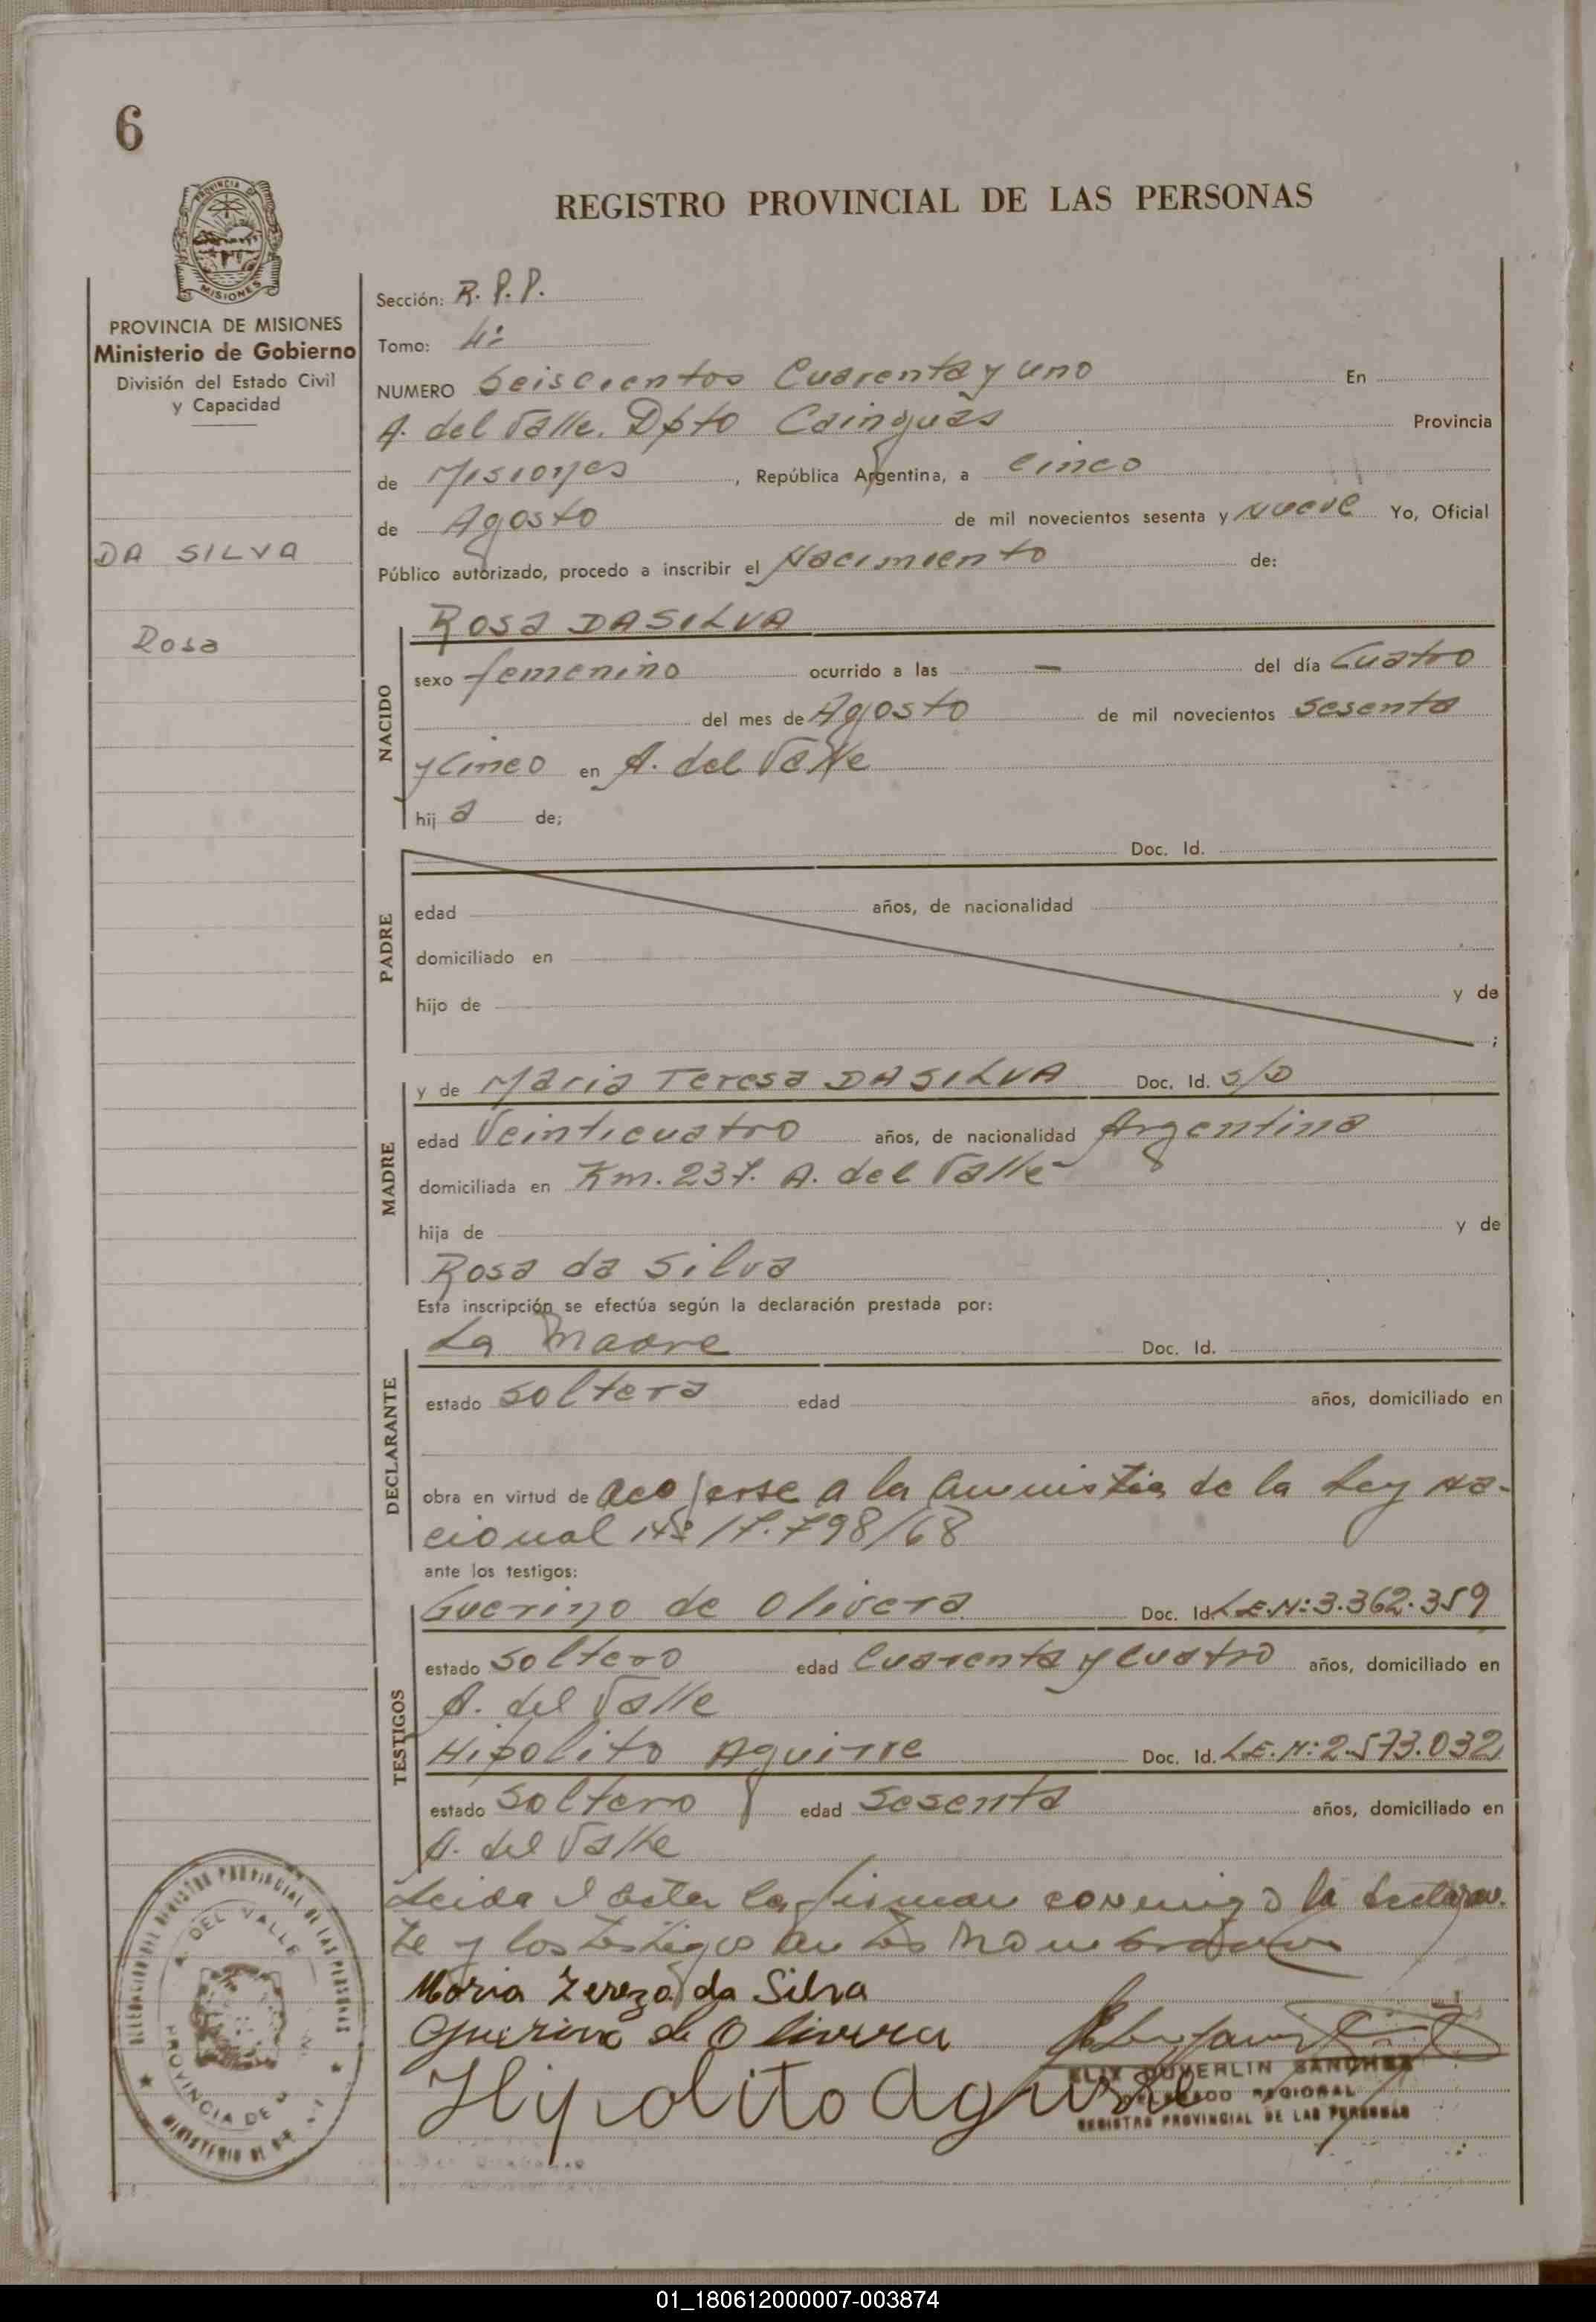 6
PROVINCIA
MISIONES
PROVINCIA DE MISIONES
Ministerio de Gobierno
División del Estado Civil
y Capacidad
DA SILVA
Rosa
REGISTRO PROVINCIAL DE LAS PERSONAS
Sección: R.P.P.
Tomo: 4º
NUMERO Seiscientos Cuarenta y uno En
A. del Valle. Dpto Cainguás Provincia
de Misiones, República Argentina, a Cinco
de Agosto de mil novecientos sesenta y Nueve Yo, Oficial
Público autorizado, procedo a inscribir el Nacimiento de:
NACIDO
Rosa DASILVA
sexo femenino ocurrido a las — del día Cuatro
del mes de Agosto de mil novecientos Sesenta
y Cinco en A. del Valle
hij a de;
PADRE
Doc. Id.
edad años, de nacionalidad
domiciliado en
hijo de y de
;
MADRE
y de Maria Teresa DASILVA Doc. Id. S/D
edad Veinticuatro años, de nacionalidad Argentina
domiciliada en Km. 237. A. del Valle
hija de y de
Rosa da Silva
Esta inscripción se efectúa según la declaración prestada por:
DECLARANTE
La Madre Doc. Id.
estado Soltera edad años, domiciliado en
obra en virtud de acojerse a la amnistia de la Ley Na-
cional Nº 17.798/68
ante los testigos:
TESTIGOS
Guerino de Olivera Doc. Id. L.E.N: 3.362.359
estado Soltero edad Cuarenta y Cuatro años, domiciliado en
A. del Valle
Hipolito Aguirre Doc. Id. L.E.N: 2.573.032
estado Soltero edad Sesenta años, domiciliado en
A. del Valle
Leida el acta la firman conmigo la declaran-
te y los testigos antes nombrados
Maria Tereza da Silva
Guerino de Olivera
Hipolito Aguirre
DUVERLIN SANCHEZ
DELEGADO REGIONAL
REGISTRO PROVINCIAL DE LAS PERSONAS
DELEGACION DEL REGISTRO PROVINCIAL DE LAS PERSONAS
A. DEL VALLE
PROVINCIA DE
MINISTERIO DE
01_180612000007-003874